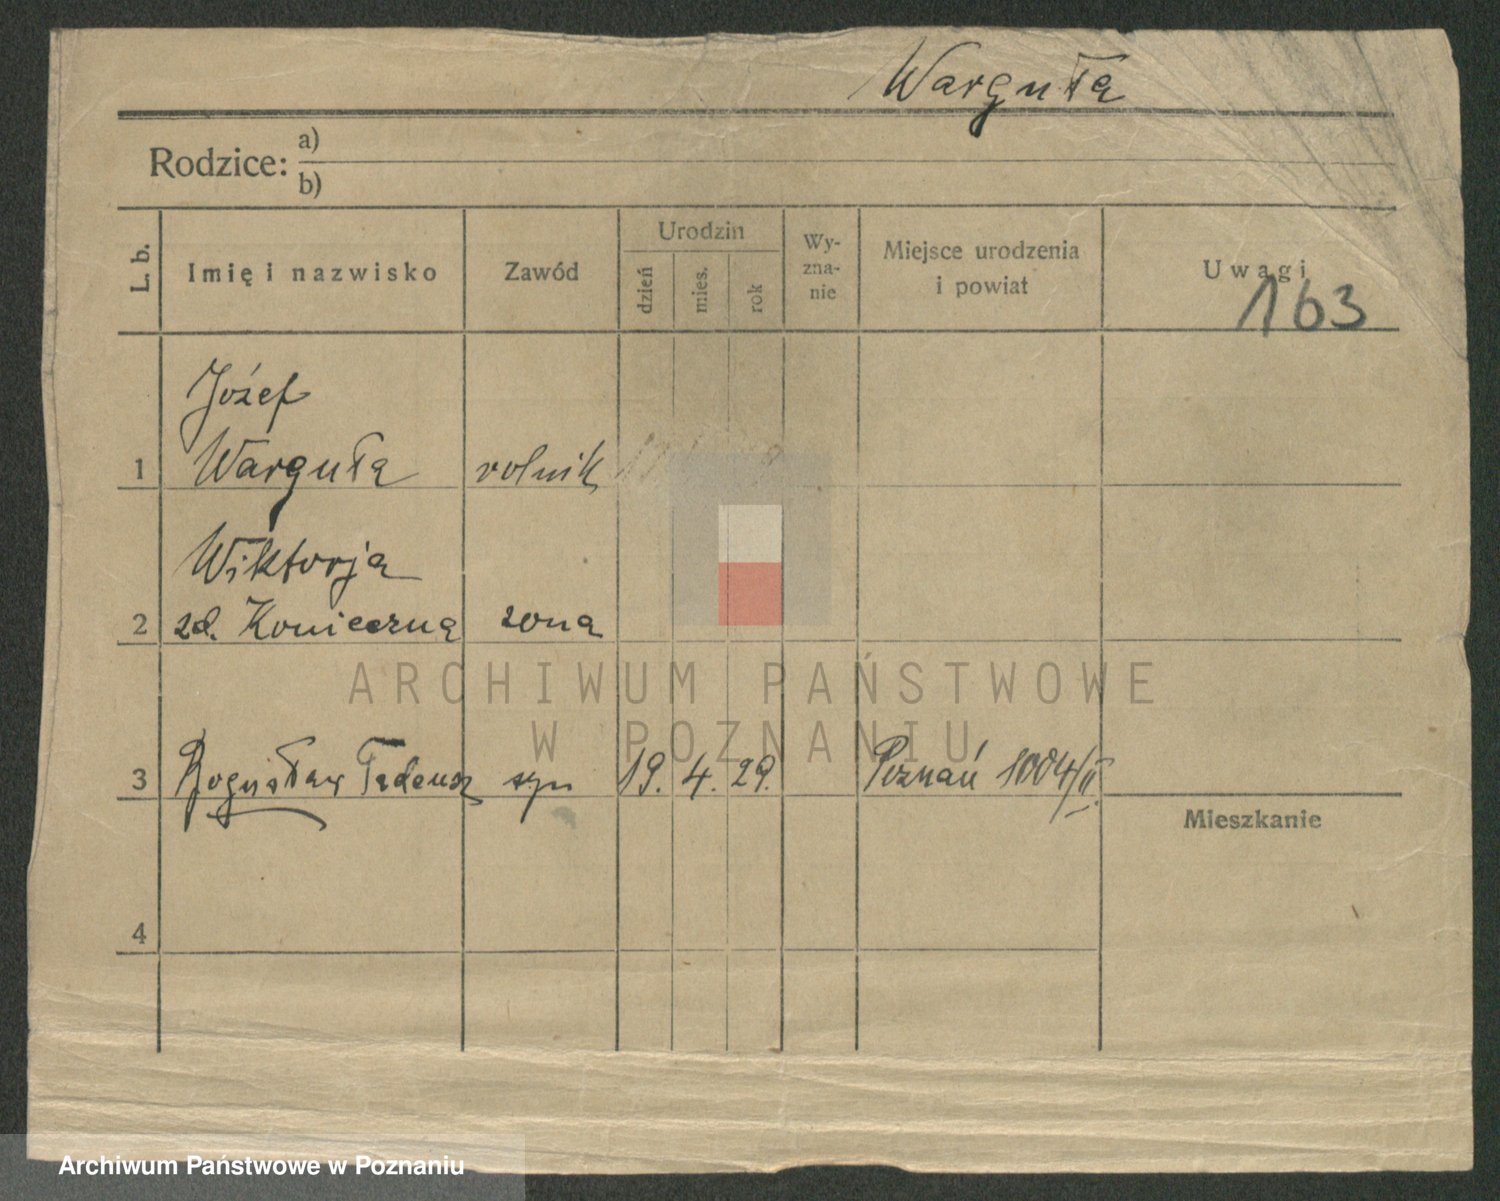 Warguła
Rodzice: a)
b)
L. b.
Imię i nazwisko
Zawód
Urodzin
dzień
mies.
rok
Wy-
zna-
nie
Miejsce urodzenia
i powiat
Uwagi
163
Józef
1 Warguła rolnik
Wiktorja
2 zd. Konieczna żona
3 Bogusław Tadeusz syn 19. 4. 29. Poznań 1004/II.
Mieszkanie
4
ARCHIWUM PAŃSTWOWE
W POZNANIU
Archiwum Państwowe w Poznaniu